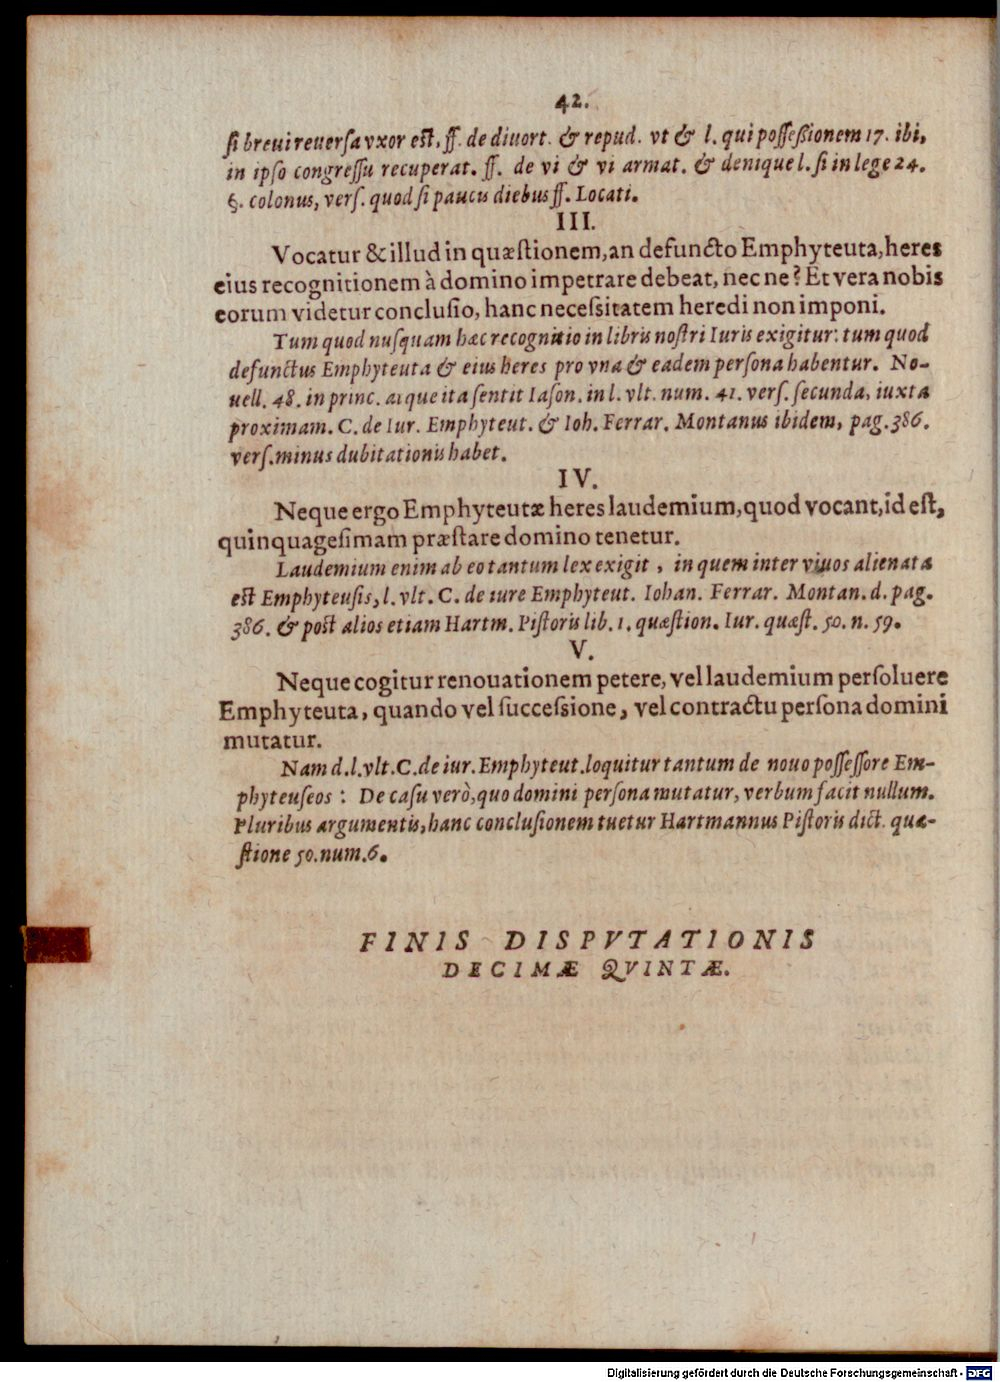 42.
si breui reuersa vxor est, ff. de diuort. & repud. vt & l. qui possessionem 17. ibi,
in ipso congressu recuperat. ff. de vi & vi armat. & denique l. si in lege 24.
§. colonus, vers. quod si paucis diebus ff. Locati.
III.
Vocatur & illud in quæstionem, an defuncto Emphyteuta, heres
eius recognitionem à domino impetrare debeat, nec ne? Et vera nobis
eorum videtur conclusio, hanc necessitatem heredi non imponi.
Tum quod nusquam hæc recognitio in libris nostri Iuris exigitur: tum quod
defunctus Emphyteuta & eius heres pro vna & eadem persona habentur. No-
uell. 48. in princ. atque ita sentit Iason. in l. vlt. num. 41. vers. secunda, iuxta
proximam. C. de Iur. Emphyteut. & Ioh. Ferrar. Montanus ibidem, pag. 386.
vers. minus dubitationis habet.
IV.
Neque ergo Emphyteutæ heres laudemium, quod vocant, id est,
quinquagesimam præstare domino tenetur.
Laudemium enim ab eo tantum lex exigit, in quem inter viuos alienata
est Emphyteusis, l. vlt. C. de iure Emphyteut. Iohan. Ferrar. Montan. d. pag.
386. & post alios etiam Hartm. Pistoris lib. 1. quæstion. Iur. quæst. 50. n. 59.
V.
Neque cogitur renouationem petere, vel laudemium persoluere
Emphyteuta, quando vel successione, vel contractu persona domini
mutatur.
Nam d. l. vlt. C. de iur. Emphyteut. loquitur tantum de nouo possessore Em-
phyteuseos: De casu verò, quo domini persona mutatur, verbum facit nullum.
Pluribus argumentis, hanc conclusionem tuetur Hartmannus Pistoris dict. quæ-
stione 50. num. 6.
FINIS DISPVTATIONIS
DECIMÆ QVINTÆ.
Digitalisierung gefördert durch die Deutsche Forschungsgemeinschaft - DFG